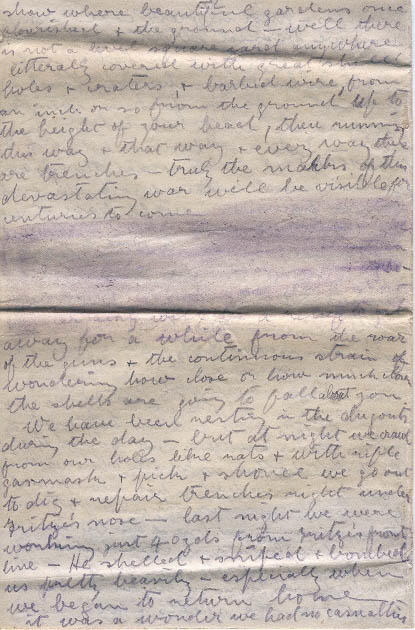 show where beautiful gardens once
flourished & the ground - well there
is not a level square yard anywhere
litterally covered with great shell
holes & craters, & barbed wire, from
an inch or so from the ground up to
the height of your head, then running
this way & that way & every way there
are trenches - truly the marks of this
devastating war will be visible for
centuries to come
away for a while from the roar
of the guns & the continuous strain of
wondering how close or how much closer
the shells are going to fall about you.
We have been resting in the dugouts
during the day - but at night we crawl
from our holes like rats & with rifle
gasmask & pick & shovel we go out
to dig & repair trenches right under
Fritze's nose - last night we were
working just 40 yds from Fritze's front
line - He shelled & sniped & bombed
us pretty heavily - especially when
we began to return home
it was a wonder we had no casualties